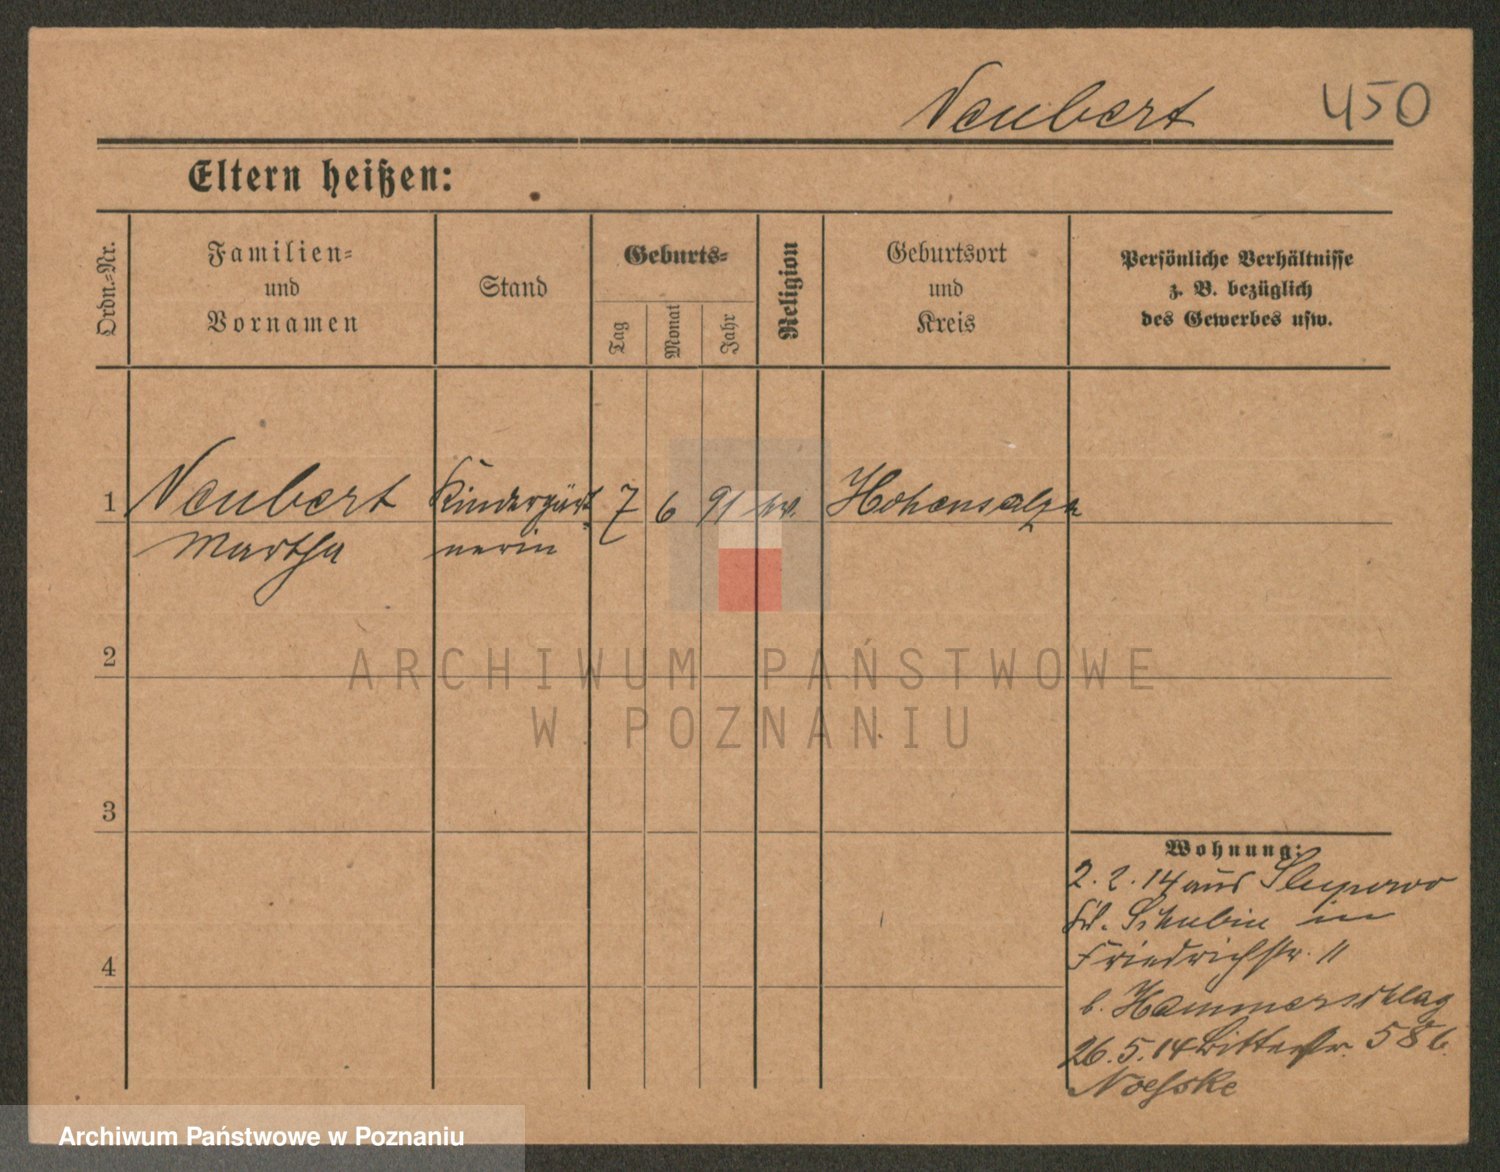 Neubert 450
Eltern heißen:
Ordn.-Nr.
Familien-
und
Vornamen
Stand
Geburts-
Tag
Monat
Jahr
Religion
Geburtsort
und
Kreis
Persönliche Verhältnisse
z. B. bezüglich
des Gewerbes usw.
1 Neubert Kindergärt 7 6 91 ev. Hohensalza
Martha nerin
2
3
4
Wohnung:
2. 2. 14 aus Slupowo
Schubin in
Friedrichstr. 11
b. Hammerschlag
26. 5. 14 58 b.
ARCHIWUM PAŃSTWOWE
W POZNANIU
Archiwum Państwowe w Poznaniu